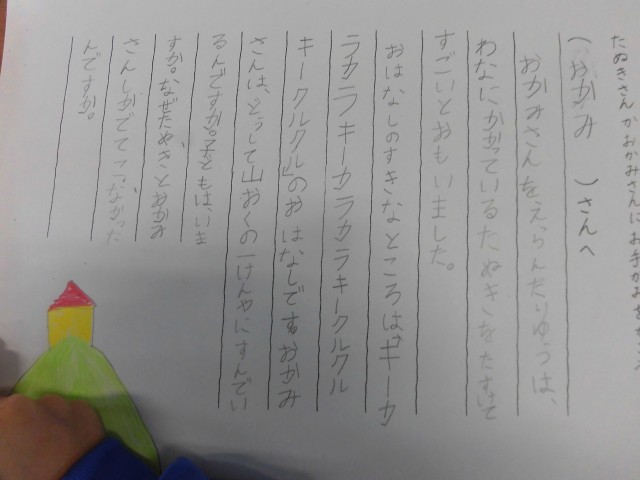 たぬきさんかおかみさんにお手がみを
（おかみ　）さんへ
おかみさんをえらんだりゆうは、
わなにかかっているたぬきをたすけて
すごいとおもいました。
おはなしのすきなところは、「キーカ
ラカラキーカラカラキークルクル
キークルクル」のおはなしです。おかみ
さんは、どうして山おくの一けんやにすんでい
るんですか。子どもは、いま
すか。なぜたぬきとおかみ
さんしかでてこなかった
んですか。